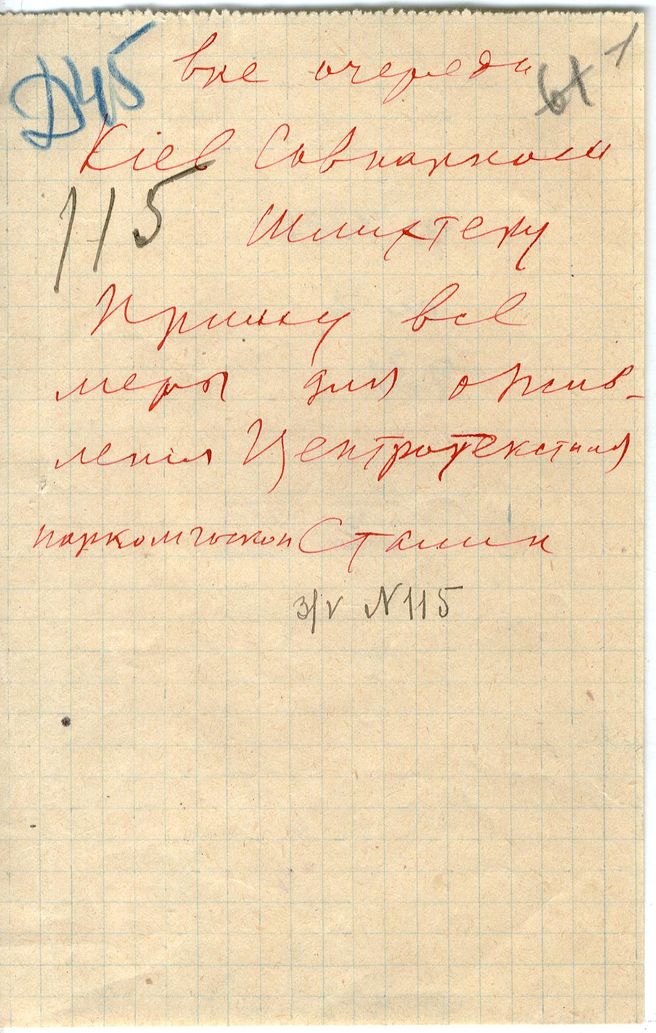 Д45
вне очереди
1
Кіев Совнарком
115
Шлихтеру
Приму все
меры для ожив-
ления Центротекстиля
наркомгоскон Сталин
3/V N 115